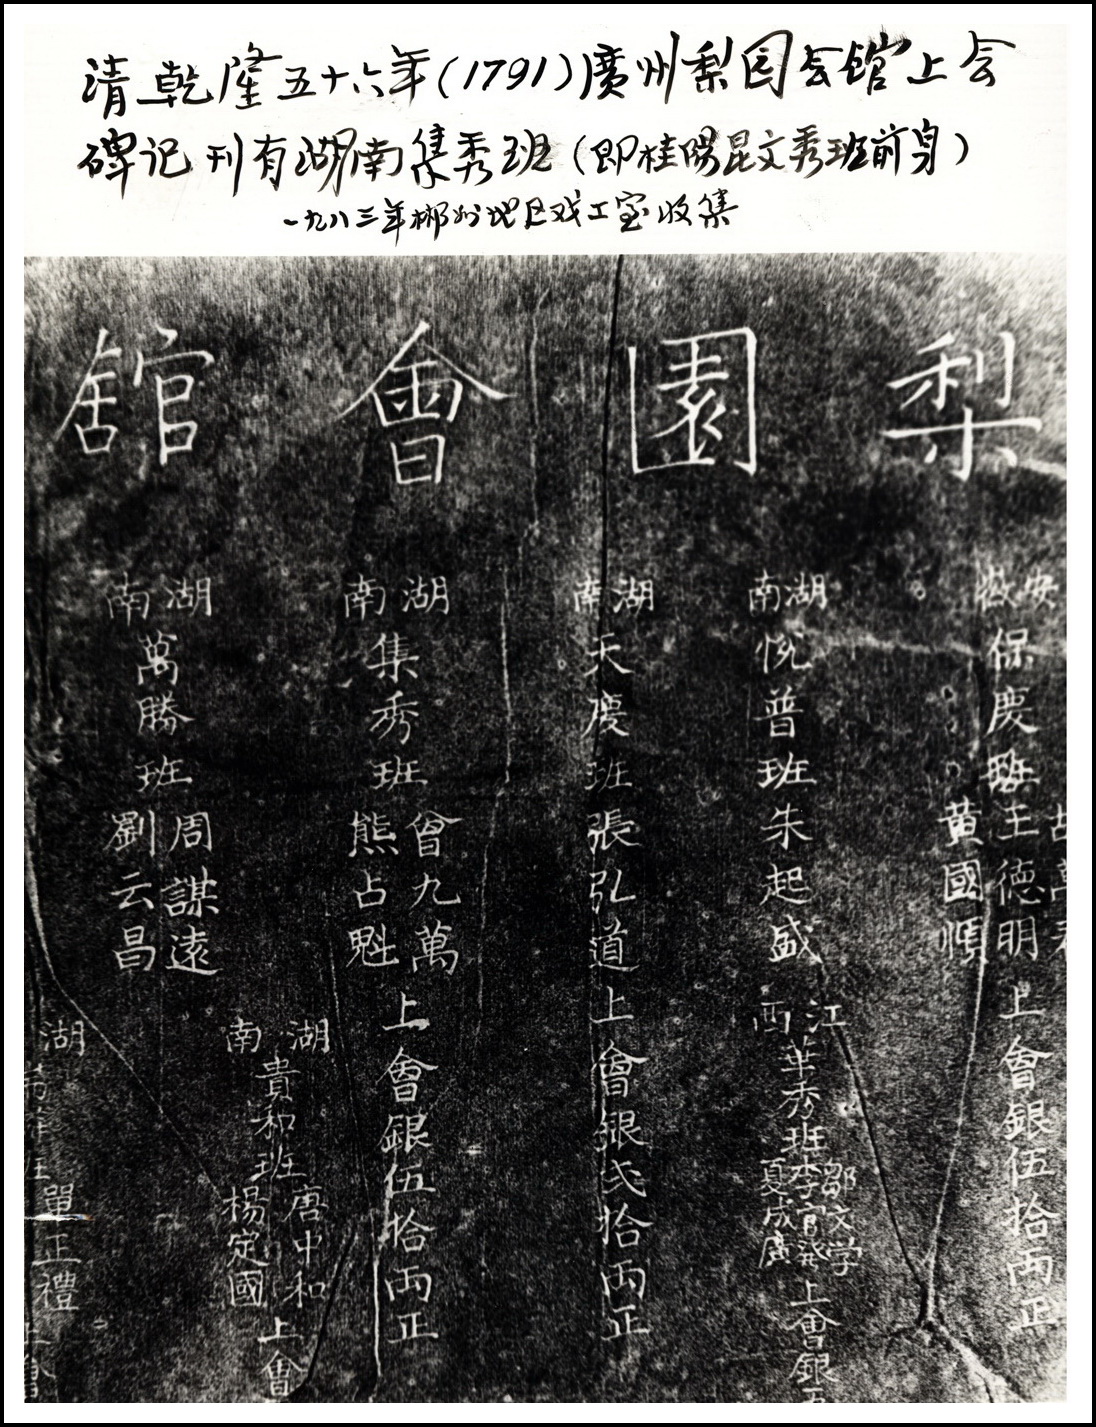 清乾隆五十六年(1791)廣州梨园会馆上会
碑记刊有湖南集秀班(即桂陽昆文秀班前身)
一九八三年郴州地区戏工室收集
梨園會館
安徽
保慶班
王德明
黃國順
上會銀伍拾両正
湖南
悅普班朱起盛
江西
華秀班
鄒文学
李官發
夏成廣
上會銀
湖南
天慶班張弘道上會銀弍拾両正
湖南
集秀班
曾九萬
熊占魁
上會銀伍拾両正
湖南
萬勝班
周謀遠
劉云昌
湖南
貴和班
唐中和
楊定國
上會
湖
單正禮